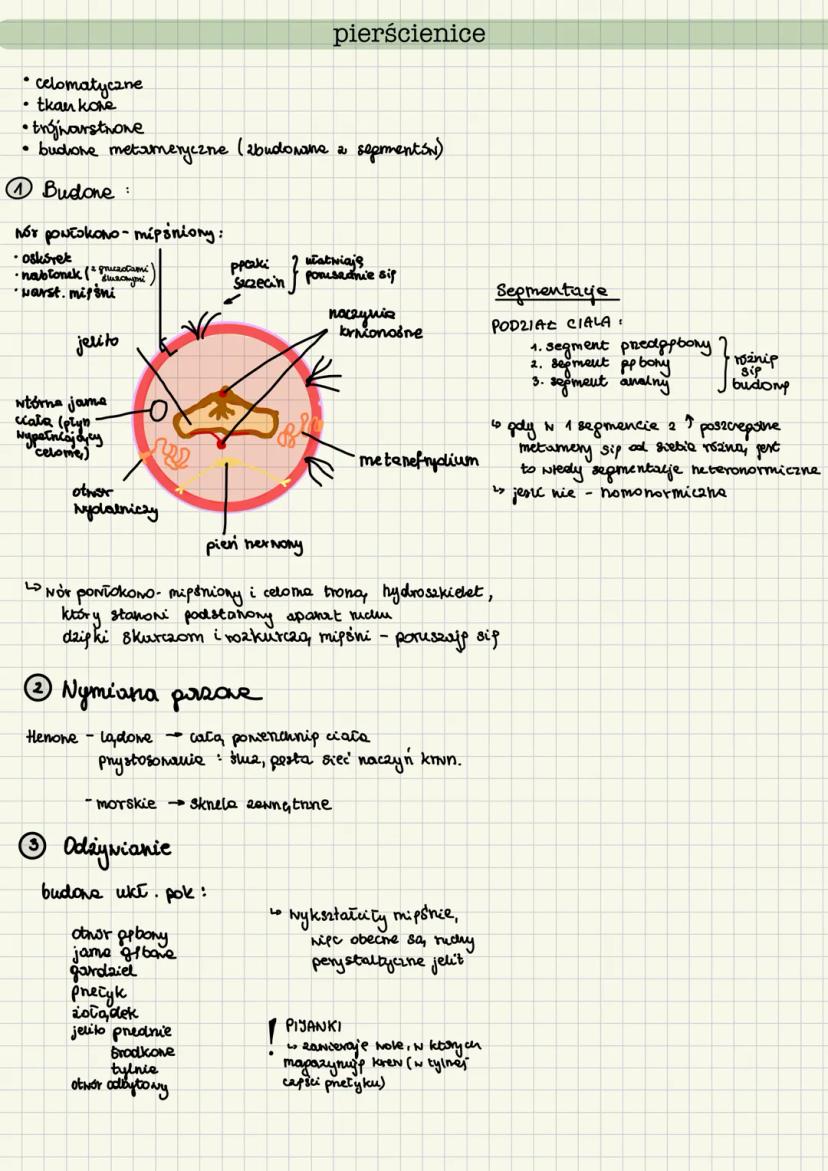 pierścienice
• celomatyczne
• tkankowe
• trójwarstwowe
• budowa metameryczna (zbudowane z segmentów)
1 Budowa :
wór powłokowo-mięśniowy :
• oskórek
• nabłonek (z gruczołami śluzowymi)
• warst. mięśni
pęczki szczecin } ułatwiają poruszanie się
naczynia krwionośne
jelito
wtórna jama
ciała (płyn
wypełniający
celomę)
otwór
wydalniczy
metanefrydium
pień nerwowy
Segmentacja
PODZIAŁ CIAŁA :
1. segment przedgębowy
2. segment gębowy
3. segment analny
} różnią
się
budową
↳ gdy w 1 segmencie 2 ↑ poszczególne
metamery się od siebie różnią, jest
to wtedy segmentacja heteronomiczna
↳ jeśli nie - homonomiczna
↳ wór powłokowo-mięśniowy i celoma tworzą hydroszkielet,
który stanowi podstawowy aparat ruchu
dzięki skurczom i rozkurczą mięśni - poruszają się
2 Wymiana gazowa
tlenowe - lądowe → całą powierzchnią ciała
przystosowanie : śluz, gęsta sieć naczyń krwn.
- morskie → skrzela zewnętrzne
3 Odżywianie
budowa ukł. pok :
otwór gębowy
jama gębowa
gardziel
przełyk
żołądek
jelito przednie
środkowe
tylnie
otwór odbytowy
↳ wykształciły mięśnie,
więc obecne są ruchy
perystaltyczne jelit
! PIJAWKI
↳ zawierają wole, w których
magazynują krew (w tylnej
części przełyku)